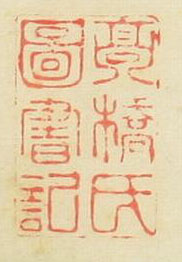 亮橋氏
圖書記